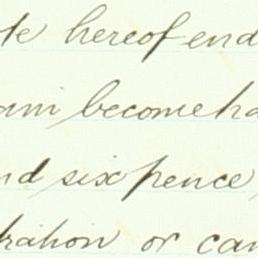 te hereof end
am become ha
nd six pence,
ration or can